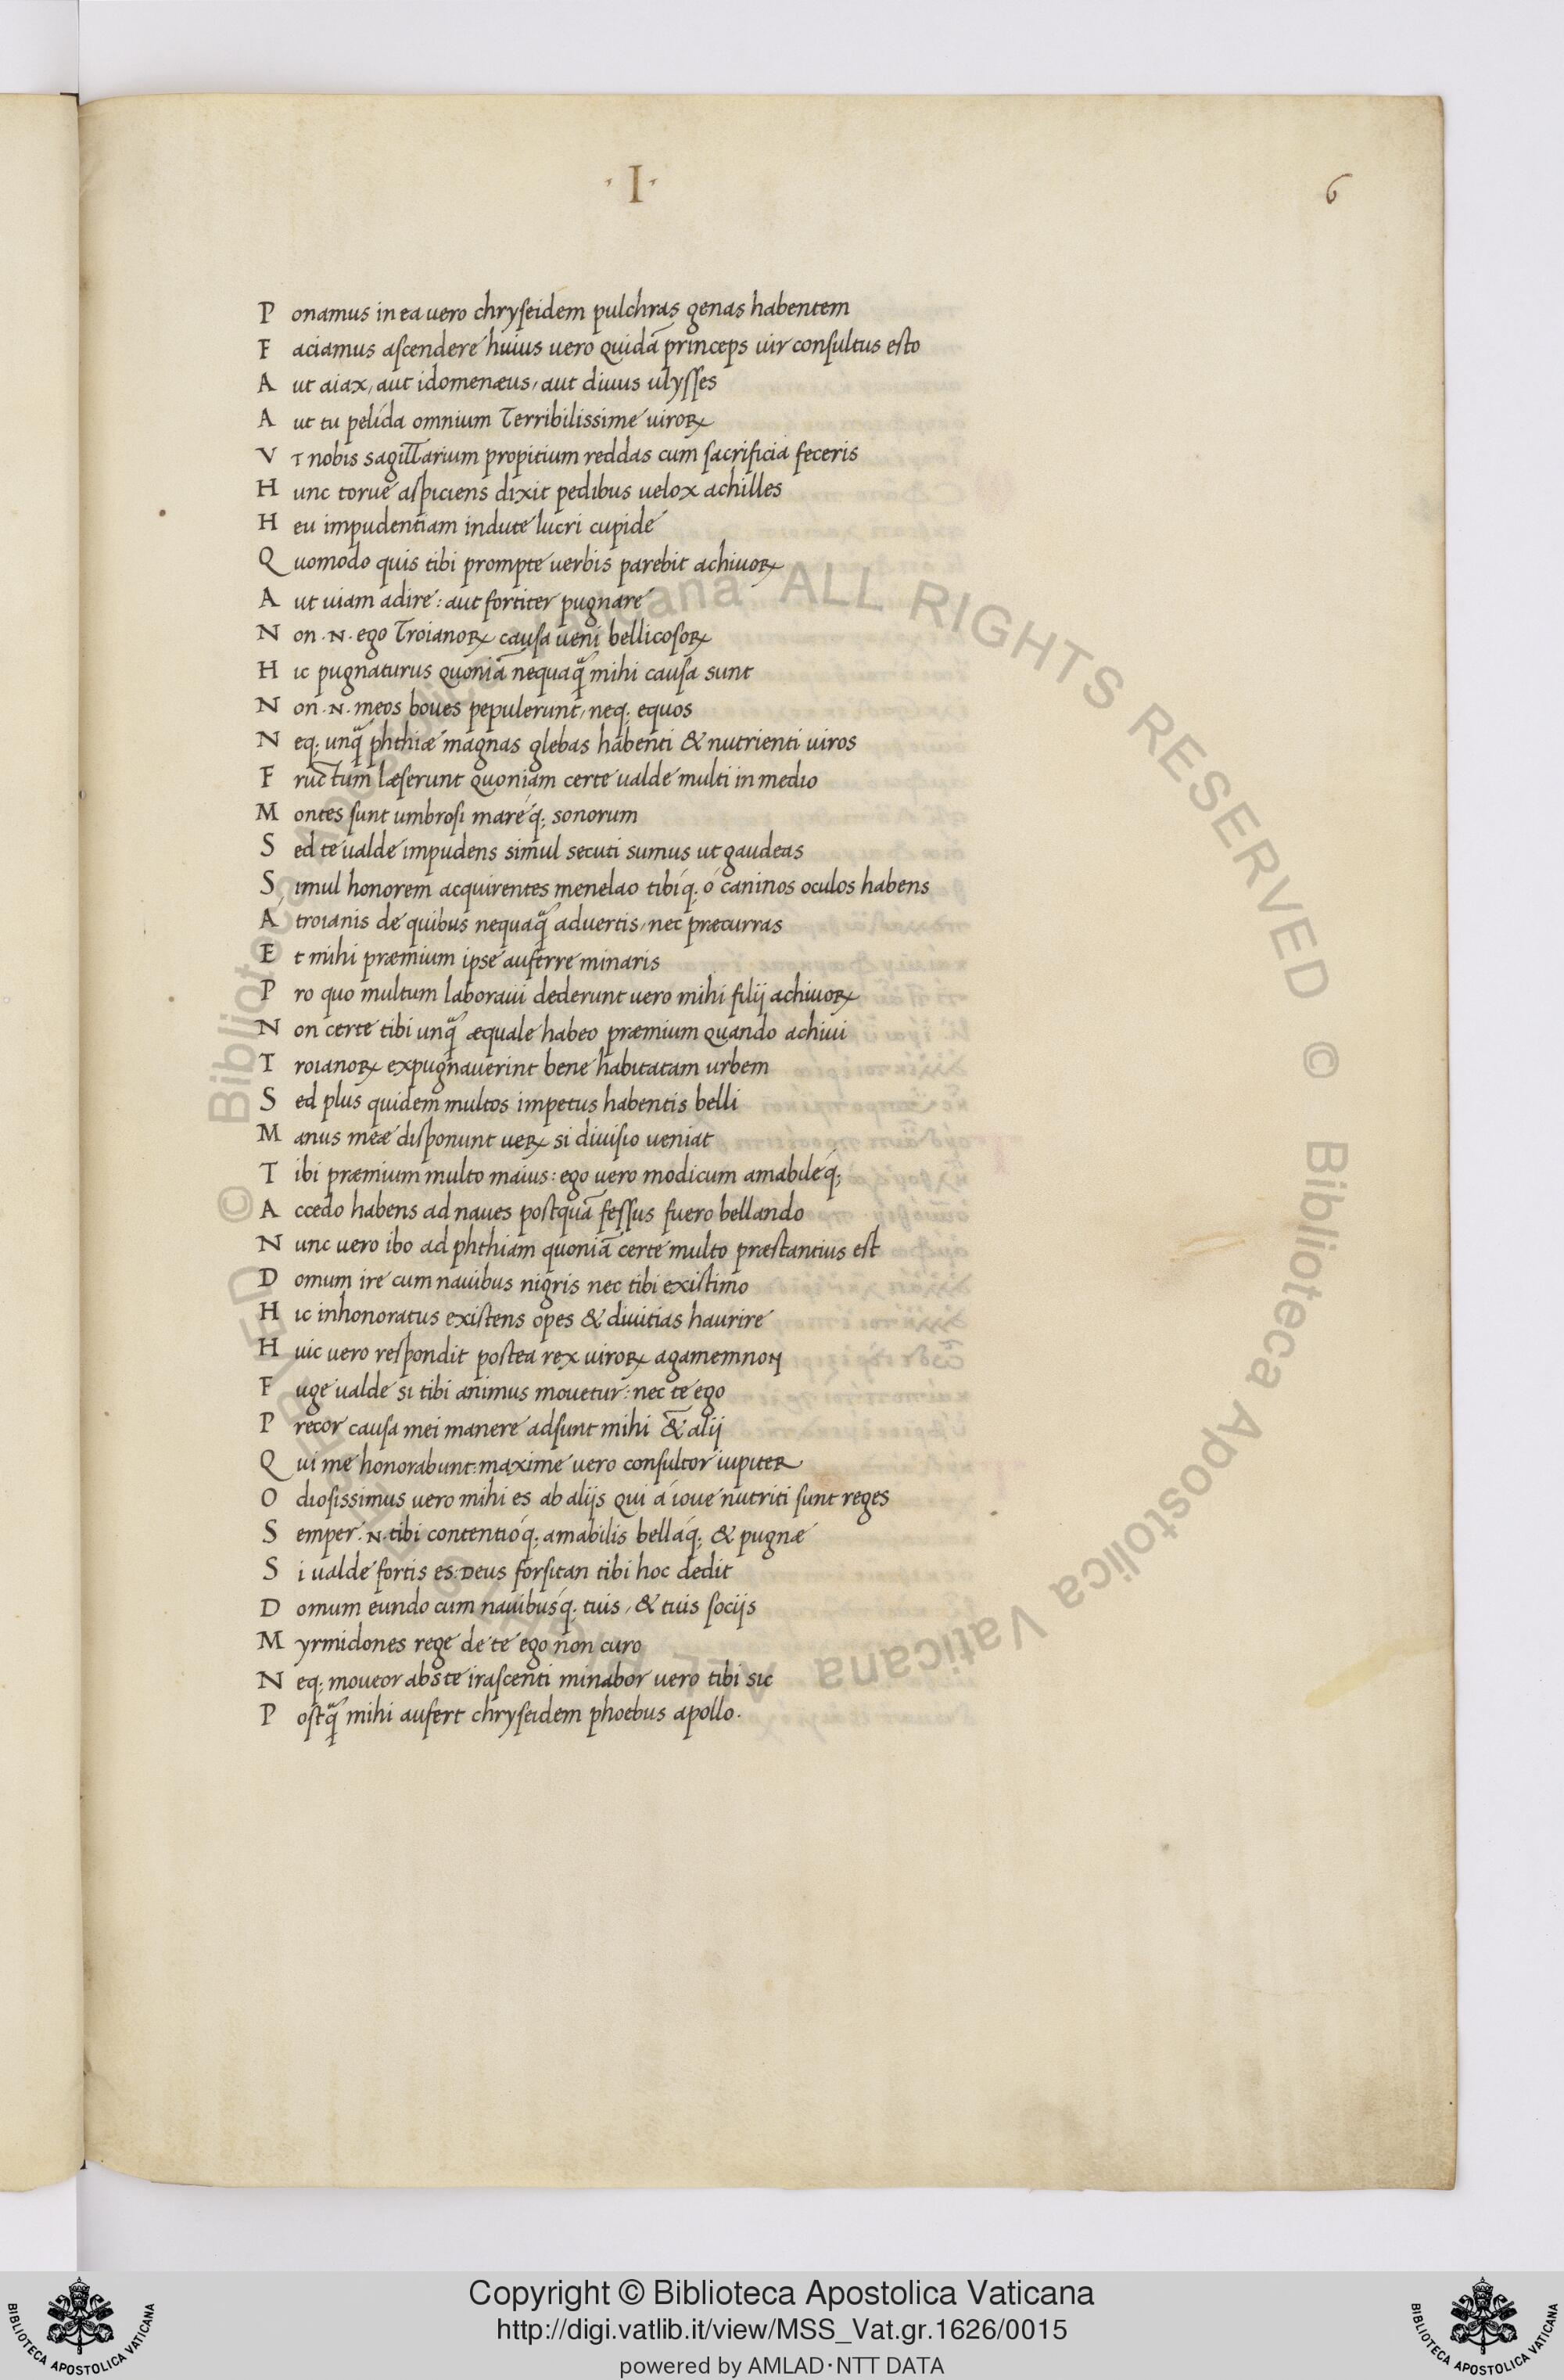 · I ·
6
Ponamus in ea uero chryseidem pulchras genas habentem
Faciamus ascendere huius uero quidã princeps uir consultus esto
Aut aiax, aut idomenæus, aut diuus ulysses
Aut tu pelída omnium terribilissime uiroꝝ
Vt nobis sagittarium propitium reddas cum sacrificia feceris
Hunc torue aspiciens dixit pedibus uelox achilles
Heu impudentiam indute lucri cupide
Quomodo quis tibi prompte uerbis parebit achiuoꝝ
Aut uiam adire: aut fortiter pugnare
Non .N. ego troianoꝝ causa ueni bellicosoꝝ
Hic pugnaturus quoniã nequaq̃ mihi causa sunt
Non .N. meos boues pepulerunt, neq; equos
Neq; unq̃ phthiæ magnas glebas habenti & nutrienti uiros
Fructum læserunt quoniam certe ualde multi in medio
Montes sunt umbrosi mareq́; sonorum
Sed te ualde impudens simul secuti sumus ut gaudeas
Simul honorem acquirentes menelao tibiq́; ó caninos oculos habens
A troianis de quibus nequaq̃ aduertis, nec præcurras
Et mihi præmium ipse auferre minaris
Pro quo multum laboraui dederunt uero mihi filij achiuoꝝ
Non certe tibi unq̃ æquale habeo præmium quando achiui
Troianoꝝ expugnauerint bene habitatam urbem
Sed plus quidem multos impetus habentis belli
Manus meæ disponunt ueꝝ si diuisio ueniat
Tibi præmium multo maius: ego uero modicum amabileq́;
Accedo habens ad naues postquã fessus fuero bellando
Nunc uero ibo ad phthiam quoniã certe multo præstantius est
Domum ire cum nauibus nigris nec tibi existimo
Hic inhonoratus existens opes & diuitias haurire
Huic uero respondit postea rex uiroꝝ agamemnon
Fuge ualde si tibi animus mouetur: nec te ego
Precor causa mei manere adsunt mihi & alij
Qui me honorabunt: maxime uero consultor iupiter
Odiosissimus uero mihi es ab alijs qui á ioue nutriti sunt reges
Semper .N. tibi contentioq́; amabilis bellaq́; & pugnæ
Si ualde fortis es: Deus forsitan tibi hoc dedit
Domum eundo cum nauibusq́; tuis, & tuis socijs
Myrmidones rege de te ego non curo
Neq; moueor abs te irascenti minabor uero tibi sic
Postq̃ mihi aufert chryseidem phoebus apollo.
© Biblioteca Apostolica Vaticana ALL RIGHTS RESERVED © Biblioteca Apostolica Vaticana ALL RIGHTS RESERVED
Copyright © Biblioteca Apostolica Vaticana
http://digi.vatlib.it/view/MSS_Vat.gr.1626/0015
powered by AMLAD·NTT DATA
BIBLIOTECA APOSTOLICA VATICANA
BIBLIOTECA APOSTOLICA VATICANA